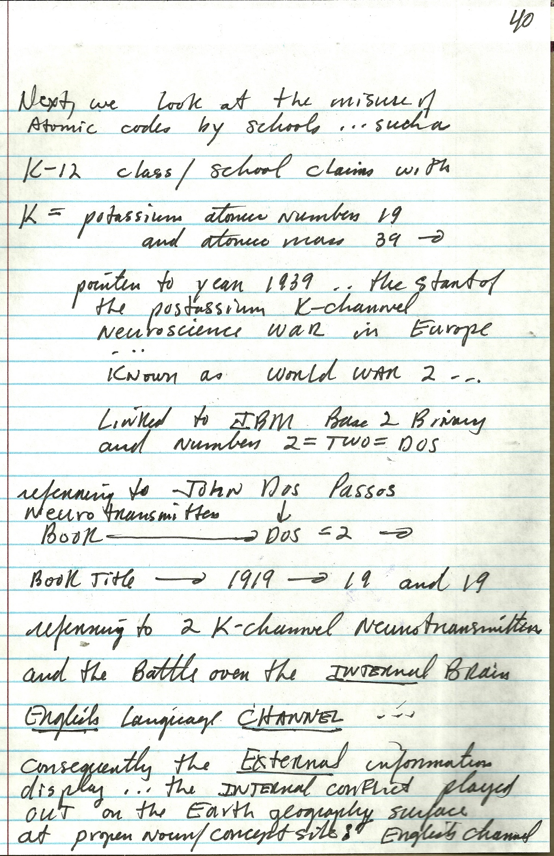 40
Next, we look at the misuse of
Atomic codes by schools ... such a
K-12 class/school claims with
K = potassium atomic numbers 19
and atomic mass 39 →
pointer to year 1939 .. the start of
the postassium K-channel
Neuroscience WAR in Europe
....
KNOWN as World WAR 2 ---
Linked to IBM Base 2 Binary
and Numbers 2 = TWO = DOS
referring to John Dos Passos
Neurotransmitter ↓
Book → DOS = 2 →
Book Title → 1919 → 19 and 19
referring to 2 K-channel Neurotransmitters
and the Battle over the INTERNAL Brain
English Language CHANNEL ....
Consequently the External information
display ... the INTERNAL conflict played
OUT on the Earth geography surface
at proper Noun/concept site: English channel